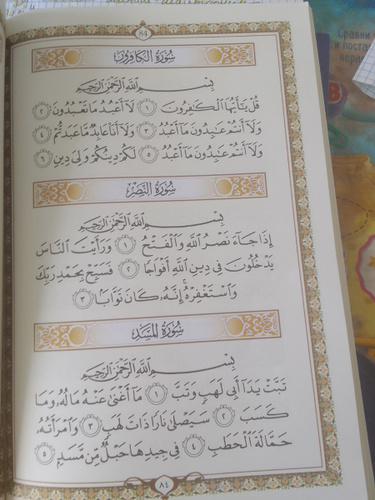 84
سُورَةُ الكَافِرُونَ
بِسْمِ اللَّهِ الرَّحْمَٰنِ الرَّحِيمِ
قُلْ يَٰٓأَيُّهَا ٱلْكَٰفِرُونَ ١ لَآ أَعْبُدُ مَا تَعْبُدُونَ ٢
وَلَآ أَنتُمْ عَٰبِدُونَ مَآ أَعْبُدُ ٣ وَلَآ أَنَا۠ عَابِدٌ مَّا عَبَدتُّمْ ٤
وَلَآ أَنتُمْ عَٰبِدُونَ مَآ أَعْبُدُ ٥ لَكُمْ دِينُكُمْ وَلِىَ دِينِ ٦
سُورَةُ النَّصْرِ
بِسْمِ اللَّهِ الرَّحْمَٰنِ الرَّحِيمِ
إِذَا جَآءَ نَصْرُ ٱللَّهِ وَٱلْفَتْحُ ١ وَرَأَيْتَ ٱلنَّاسَ
يَدْخُلُونَ فِى دِينِ ٱللَّهِ أَفْوَاجًا ٢ فَسَبِّحْ بِحَمْدِ رَبِّكَ
وَٱسْتَغْفِرْهُ إِنَّهُۥ كَانَ تَوَّابًۢا ٣
سُورَةُ المَسَدِ
بِسْمِ اللَّهِ الرَّحْمَٰنِ الرَّحِيمِ
تَبَّتْ يَدَآ أَبِى لَهَبٍ وَتَبَّ ١ مَآ أَغْنَىٰ عَنْهُ مَالُهُۥ وَمَا
كَسَبَ ٢ سَيَصْلَىٰ نَارًا ذَاتَ لَهَبٍ ٣ وَٱمْرَأَتُهُۥ
حَمَّالَةَ ٱلْحَطَبِ ٤ فِى جِيدِهَا حَبْلٌ مِّن مَّسَدٍۭ ٥
٨٤
Сравни
и постав